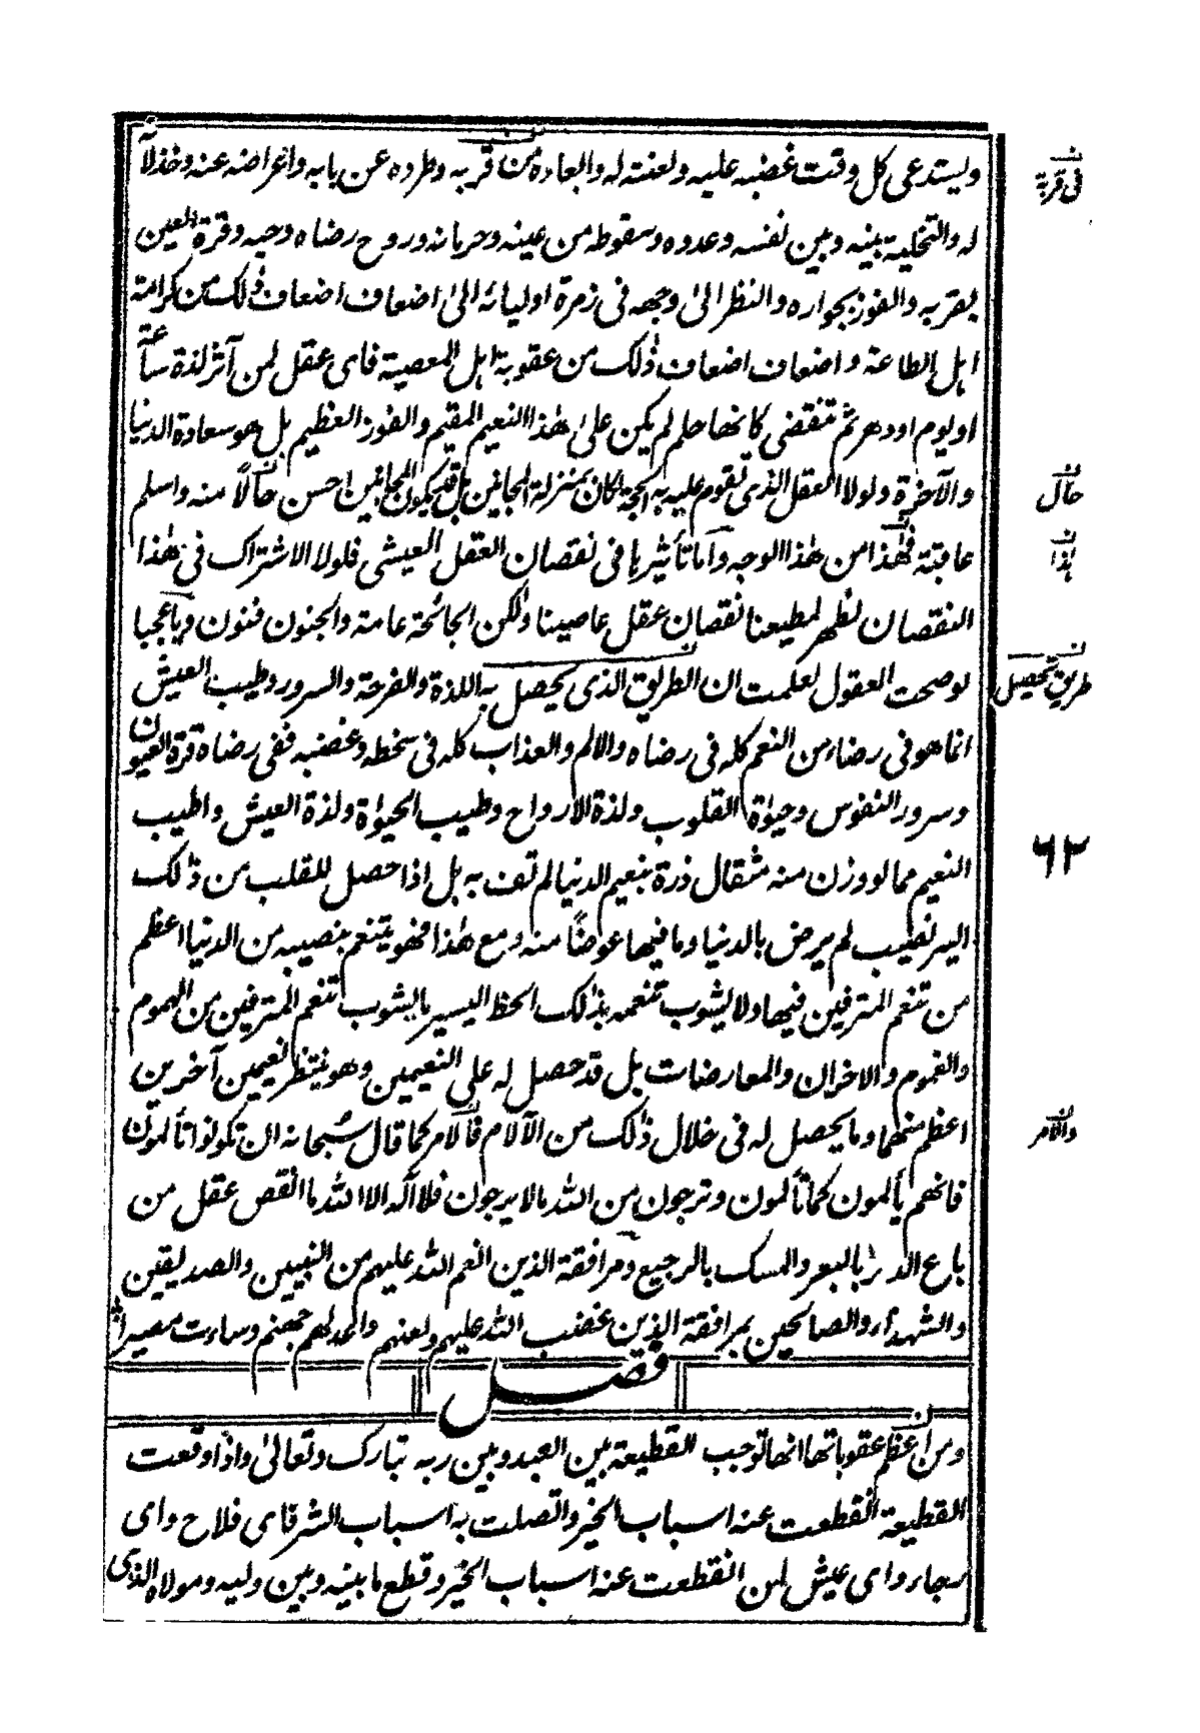 ويستدعى كل وقت غضبه عليه ولعنته له وابعاده من قربه وطرده عن بابه واعراضه عنه وخذلانه
له والتخلية بينه وبين نفسه وعدوه وسقوطه من عينه وحرمانه روح رضاه وحبه وقرة العين
بقربه والفوز بجواره والنظر الى وجهه فى زمرة اوليائه الى اضعاف اضعاف ذلك من كرامة
اهل الطاعة و اضعاف اضعاف ذلك من عقوبة اهل المعصية فاى عقل لمن آثر لذة ساعة
او يوم او دهر ثم تنقضى كانها حلم لم يكن على هذا النعيم المقيم والفوز العظيم بل هو سعادة الدنيا
والآخرة ولولا العقل الذى تقوم عليه به الحجة لكان بمنزلة المجانين بل قد يكون المجانين احسن حالا منه واسلم
عاقبة فهذا من هذا الوجه واما تأثيرها فى نقصان العقل العيشى فلولا الاشتراك فى هذا
النقصان لظهر لمطيعنا نقصان عقل عاصينا ولكن الجائحة عامة والجنون فنون ويا عجبا
لو صحت العقول لعلمت ان الطريق الذى يحصل به اللذة والفرحة والسرور وطيب العيش
انما هو فى رضاء من النعم كله فى رضاه والالم والعذاب كله فى سخطه وغضبه ففى رضاه قرة العيون
وسرور النفوس وحيوٰة القلوب ولذة الارواح وطيب الحيوٰة ولذة العيش واطيب
النعيم مما لو وزن منه مثقال ذرة بنعيم الدنيا لم تف به بل اذا حصل للقلب من ذلك
اليسر نصيب لم يرض بالدنيا وما فيها عوضًا منه ومع هذا فهو يتنعم بنصيبه من الدنيا اعظم
من تنعم المترفين فيها ولا يشوب تنعمه بذلك الحظ اليسير ما يشوب تنعم المترفين من الهموم
والغموم والاحزان والمعارضات بل قد حصل له على النعيمين وهو ينتظر نعيمين آخرين
اعظم منهما وما يحصل له فى خلال ذلك من الآلام فالامر كما قال سبحانه ان تكونوا تألمون
فانهم يألمون كما تألمون وترجون من الله ما لا يرجون فلا اله الا الله ما انقص عقل من
باع الدر بالبعر والمسك بالرجيع ومرافقة الذين انعم الله عليهم من النبيين والصديقين
والشهداء والصالحين بمرافقة الذين غضب الله عليهم ولعنهم واعد لهم جهنم وساءت مصيرا
فصل
ومن اعظم عقوباتها انها توجب القطيعة بين العبد وبين ربه تبارك وتعالى واذا وقعت
القطيعة انقطعت عنه اسباب الخير واتصلت به اسباب الشر فاى فلاح واى
رجاء واى عيش لمن انقطعت عنه اسباب الخير وقطع ما بينه وبين وليه ومولاه الذى
حال
هذا
طريق تحصيل
٦٢
والامر